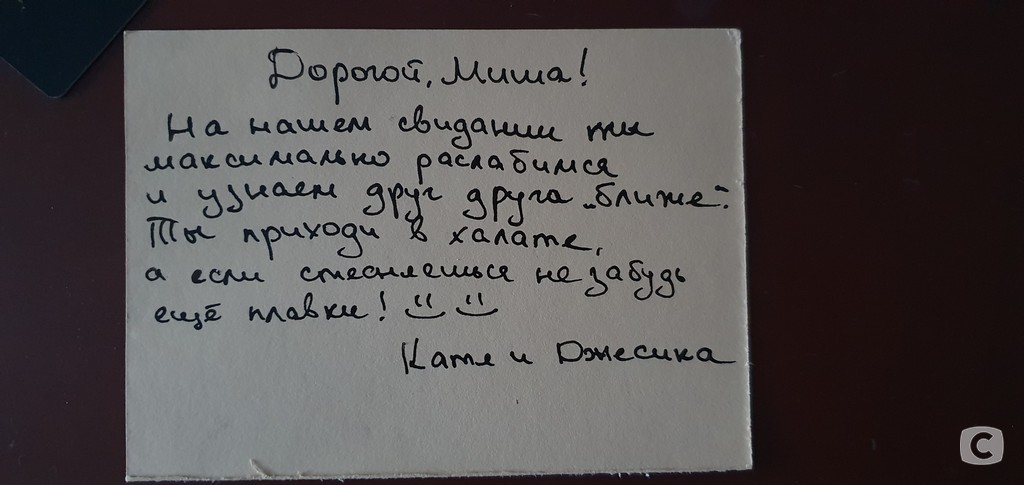 Дорогой, Миша!
На нашем свидании мы
максимально раслабимся
и узнаем друг друга „ближе“.
Ты приходи в халате,
а если стесняешься не забудь
ещё плавки! ‿̈ ‿̈
Катя и Джесика
C